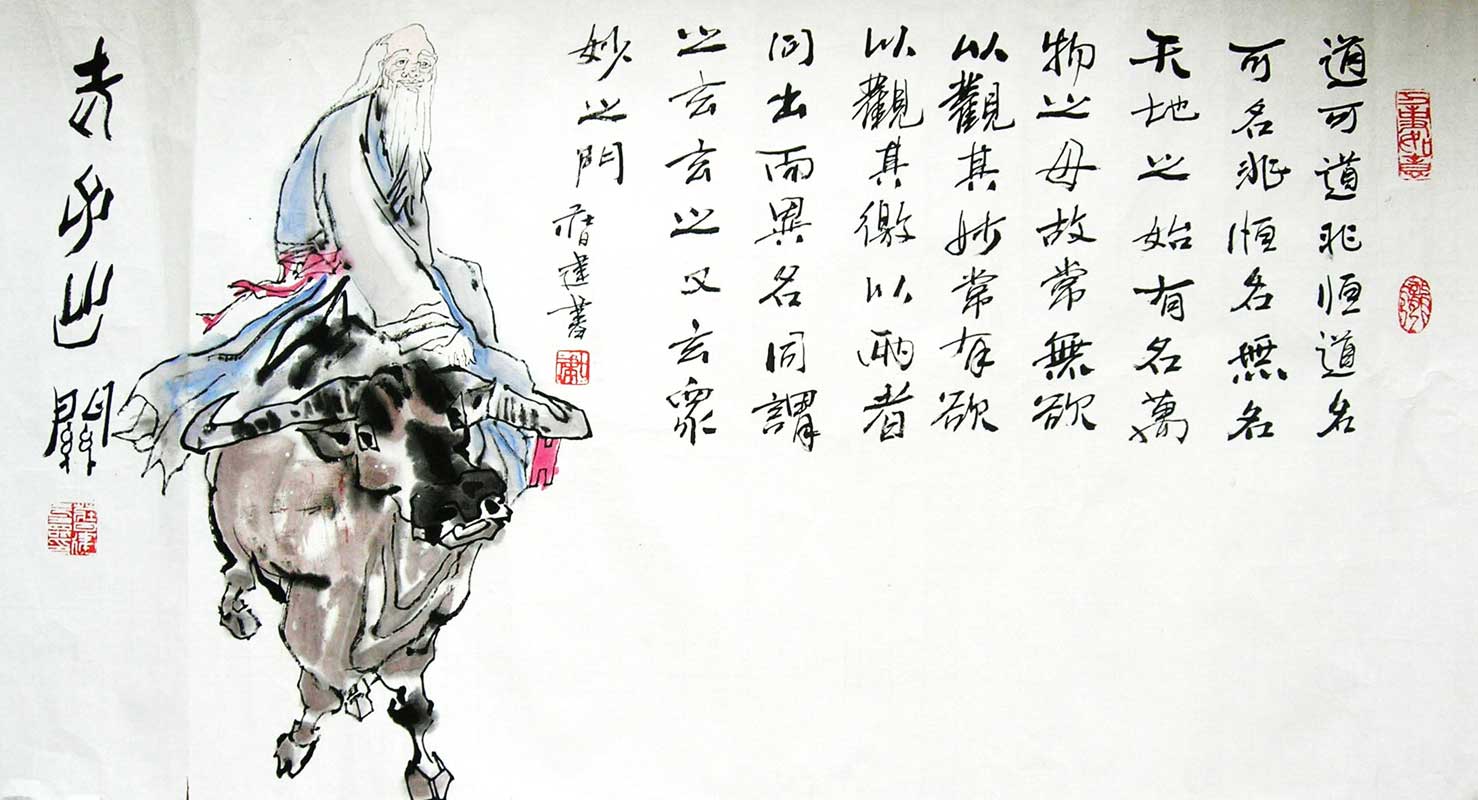 万事如意
道可道非恒道名
可名非恒名無名
天地之始有名萬
物之母故常無欲
以觀其妙常有欲
以觀其徼以兩者
同出而異名同謂
之玄玄之又玄眾
妙之門
建書
老子出關